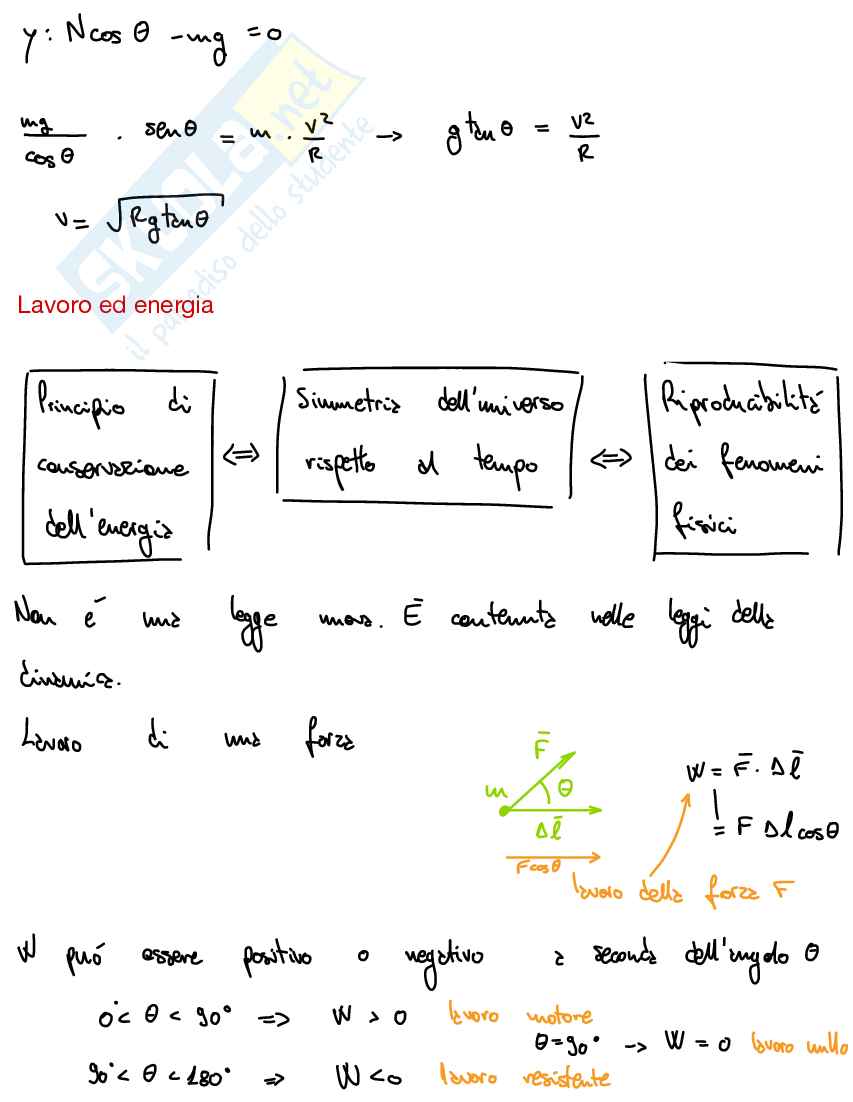 y: N cos θ - mg = 0
mg/cos θ · sen θ = m · v²/R → g tan θ = v²/R
v = √(R g tan θ)
SKUOLA.net
il paradiso dello studente
Lavoro ed energia
Principio di conservazione dell'energia ⇔ Simmetria dell'universo rispetto al tempo ⇔ Riproducibilitá dei fenomeni fisici
Non é una legge nuova. É contenuta nelle leggi della
dinamica.
Lavoro di una forza
F̄
m θ
Δl̄
F cos θ
W = F̄ · Δl̄
= F Δl cos θ
lavoro della forza F
W puó essere positivo o negativo a seconda dell'angolo θ
0° < θ < 90° => W > 0 lavoro motore
θ = 90° -> W = 0 lavoro nullo
90° < θ < 180° => W < 0 lavoro resistente